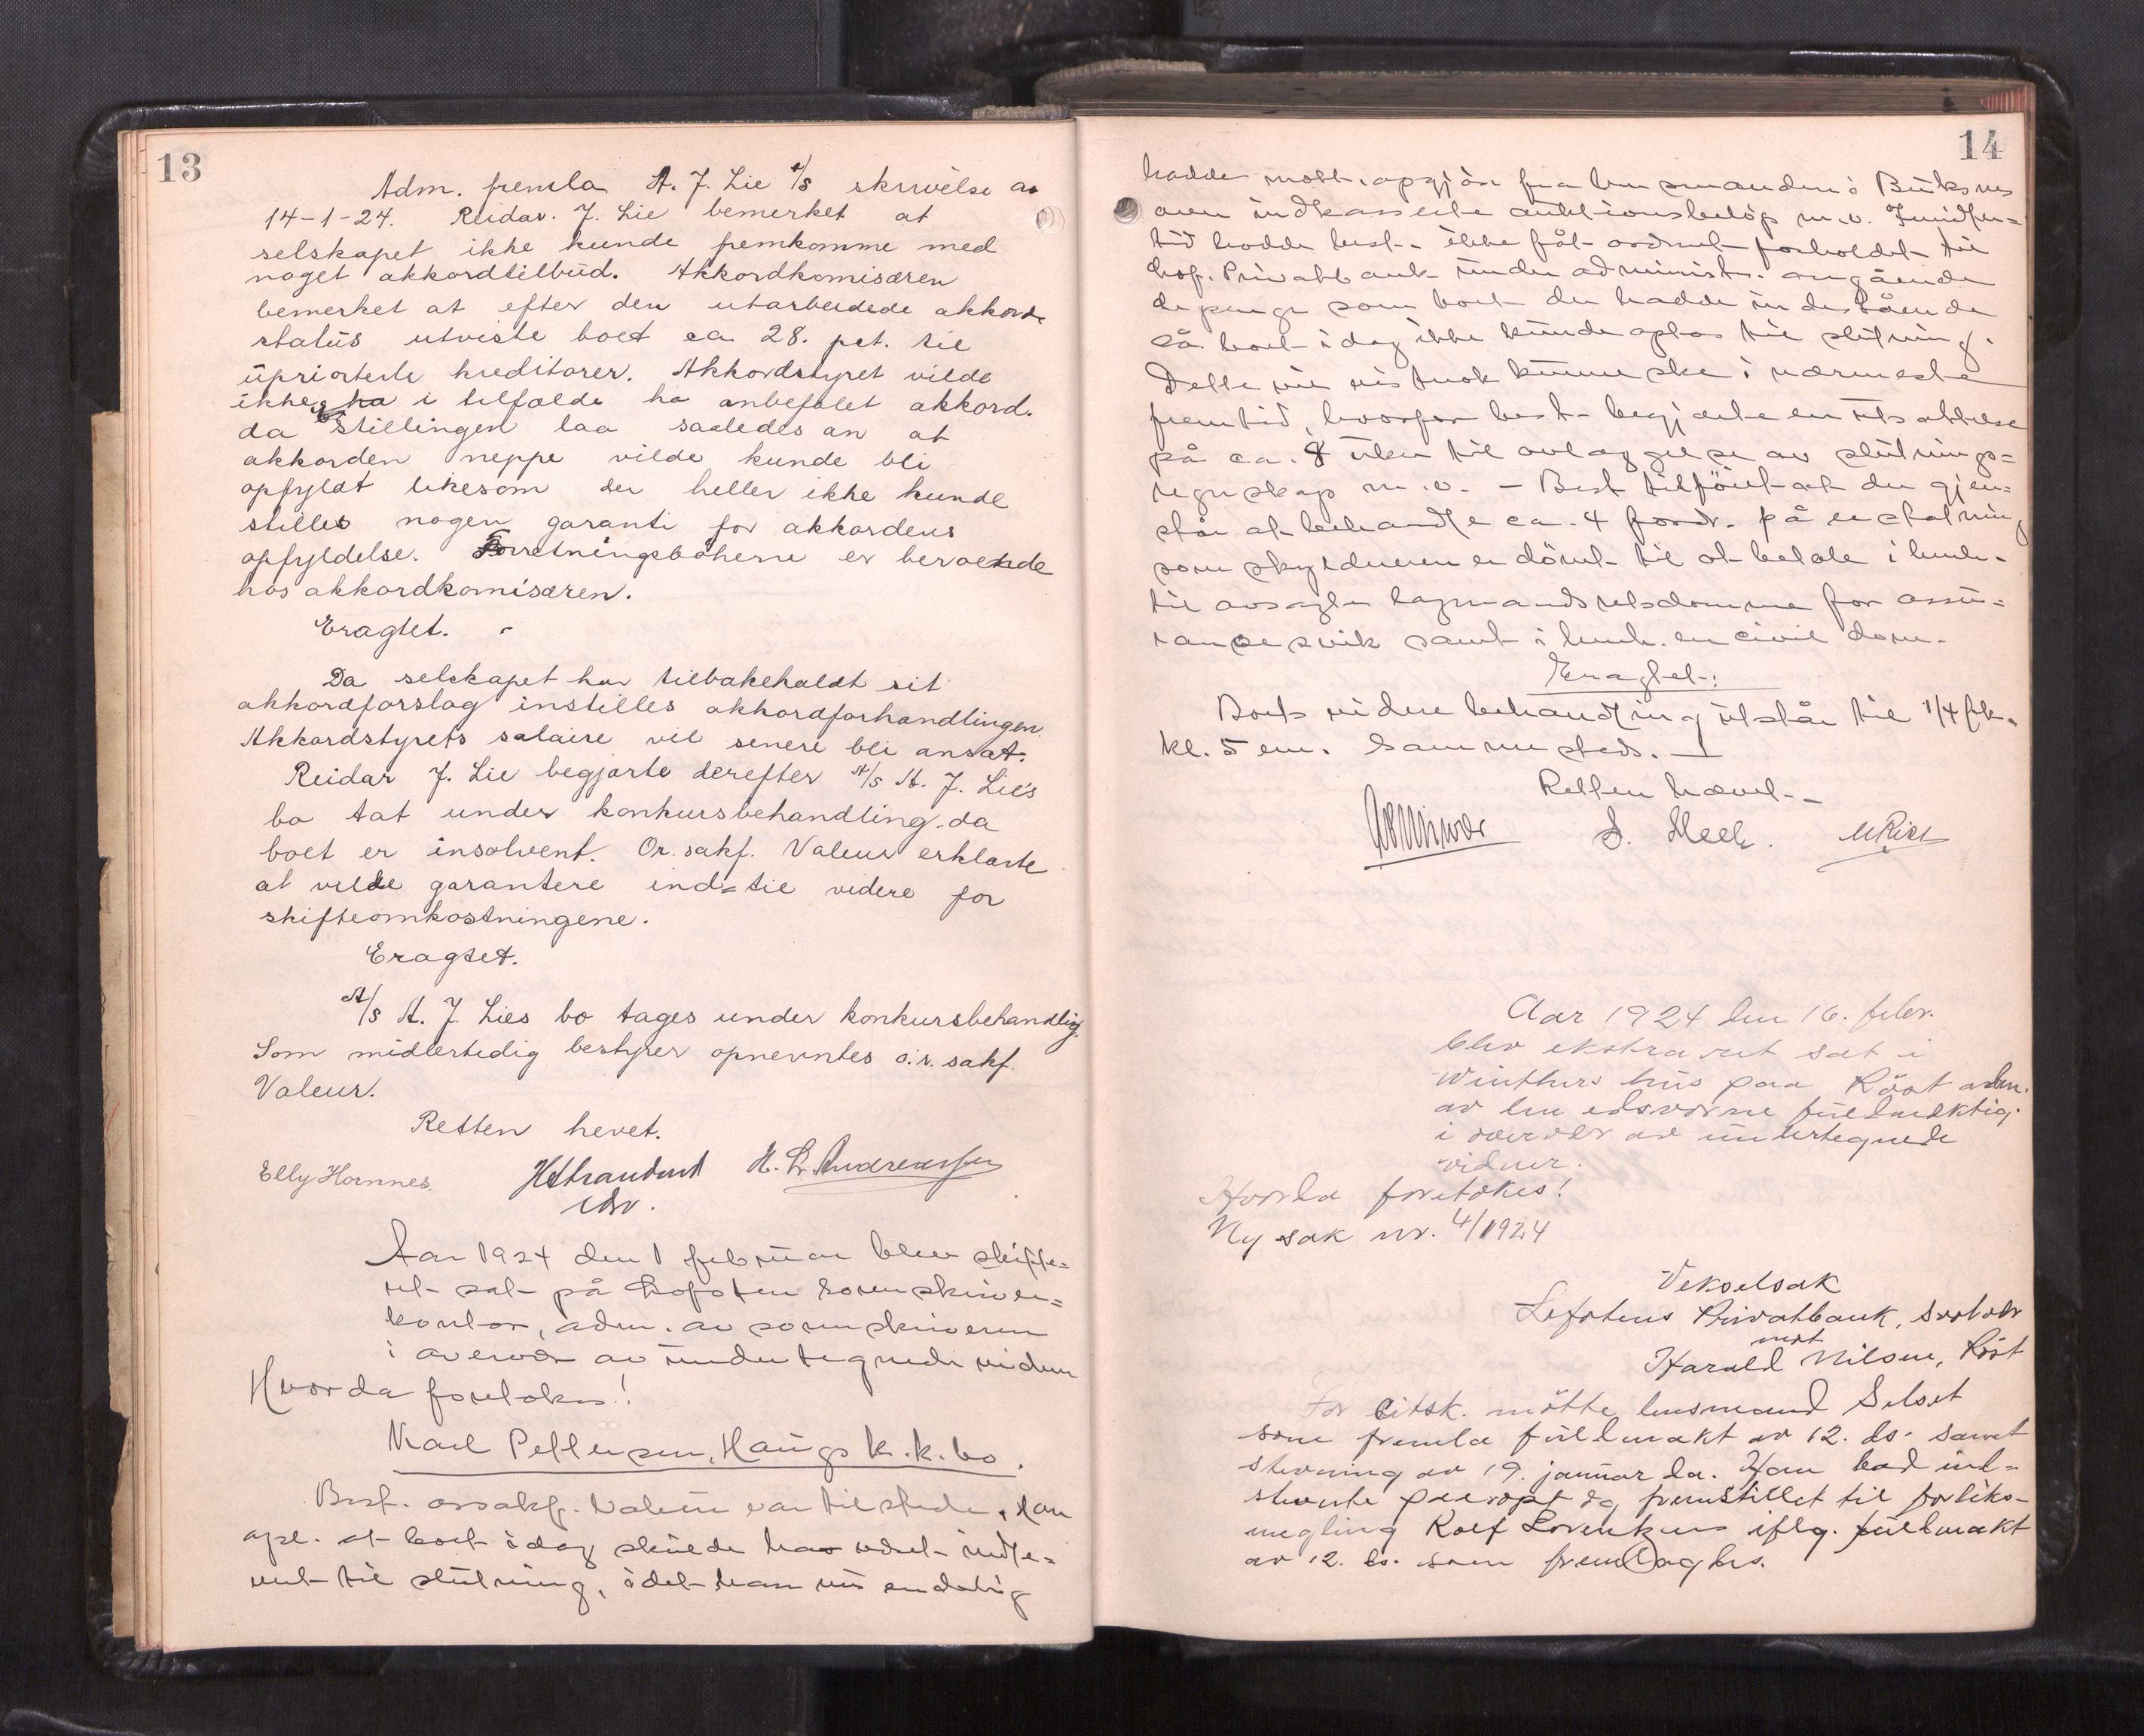 13
Adm. fremla A. J. Lie A/S skrivelse av
14-1-24. Reidar J. Lie bemerket at
selskapet ikke kunde fremkomme med
noget akkordtilbud. Akkordkomisæren
bemerket at efter den utarbeidede akkord
status utviste boet ca 28. pct. til
upriorterte kreditorer. Akkordstyret vilde
ikke i tilfælde ha anbefalet akkord.
da stillingen laa saaledes an at
akkorden neppe vilde kunde bli
opfyldt likesom der heller ikke kunde
stilles nogen garanti for akkordens
opfyldelse. Forretningsbøkerne er beroende
hos akkordkomisæren.
Eragtet.
Da selskapet har tilbakekaldt sit
akkordforslag instilles akkordforhandlingen.
Akkordstyrets salaire vil senere bli ansat.
Reidar J. Lie begjærte derefter A/S A. J. Lie's
bo tat under konkursbehandling da
boet er insolvent. Or. sakf. Valeur erklærte
at vilde garantere ind=til videre for
skifteomkostningene.
Eragtet.
A/S A. J. Lies bo tages under konkursbehandlig.
Som midlertidig bestyrer opnevntes o.r. sakf.
Valeur.
Retten hevet.
Elly Hornnes. H. L. Andreassen
Aar 1924 den 1 februar blev skifte=
ret sat på Lofoten sorenskriver=
kontor, adm. av sorenskriveren
i overvær av undertegnede vidner
Hvorda foretokes!
Karl Pettersen, Haugs k.k. bo.
Best. orsakf. Valeur var tilstede. Han
opl. at boet idag skulde ha vært indle=
vert til slutning, idet han nu endelig
14
hadde mott. opgjör fra lensmanden i Buksnes
over indkasserte auktionsbelöp m.v. Imidler=
tid hadde best. ikke fåt ordnet forholdet til
Lof. Privatbank under administr. angående
de penge som boet der hadde indestående
så boet idag ikke kunde optas til slutning.
Dette vil vistnok kunne ske i nærmeste
fremtid, hvorfor best. begjærte en utsættelse
på ca. 8 uker til avlæggelse av slutnings=
regnskap m.v. - Best tilföiet at der gjen=
står at behandle ca. 4 fordr. på erstatning
som skyldneren er dömt til at betale i henh.
til avsagte lagmandsretsdomme for assu=
ransesvik samt i henh. en civil dom.
Eragtet:
Boets videre behandling utstår til 1/4 frk.
kl. 5 em. samme sted.
Retten hævet.
S. Meek.
Aar 1924 den 16. febr.
blev ekstraret sat i
Winthers hus paa Röst adm.
av den edsvorne fuldmektig
i overvær av undertegnede
vidner.
Hvorda foretokes!
Ny sak nr. 4/1924
Vekselsak
Lofotens Privatbank, Svolvær
mot
Harald Nilsen, Röst
For citsk. mötte lensmand Selset
som fremla fuldmakt av 12. ds. samt
stevning av 19. januar da. Han bad ind-
stevnte paaropt og fremstillet til forliks-
megling Rolf Lorentzen iflg. fuldmakt
av 12. ds. som fremlagdes.